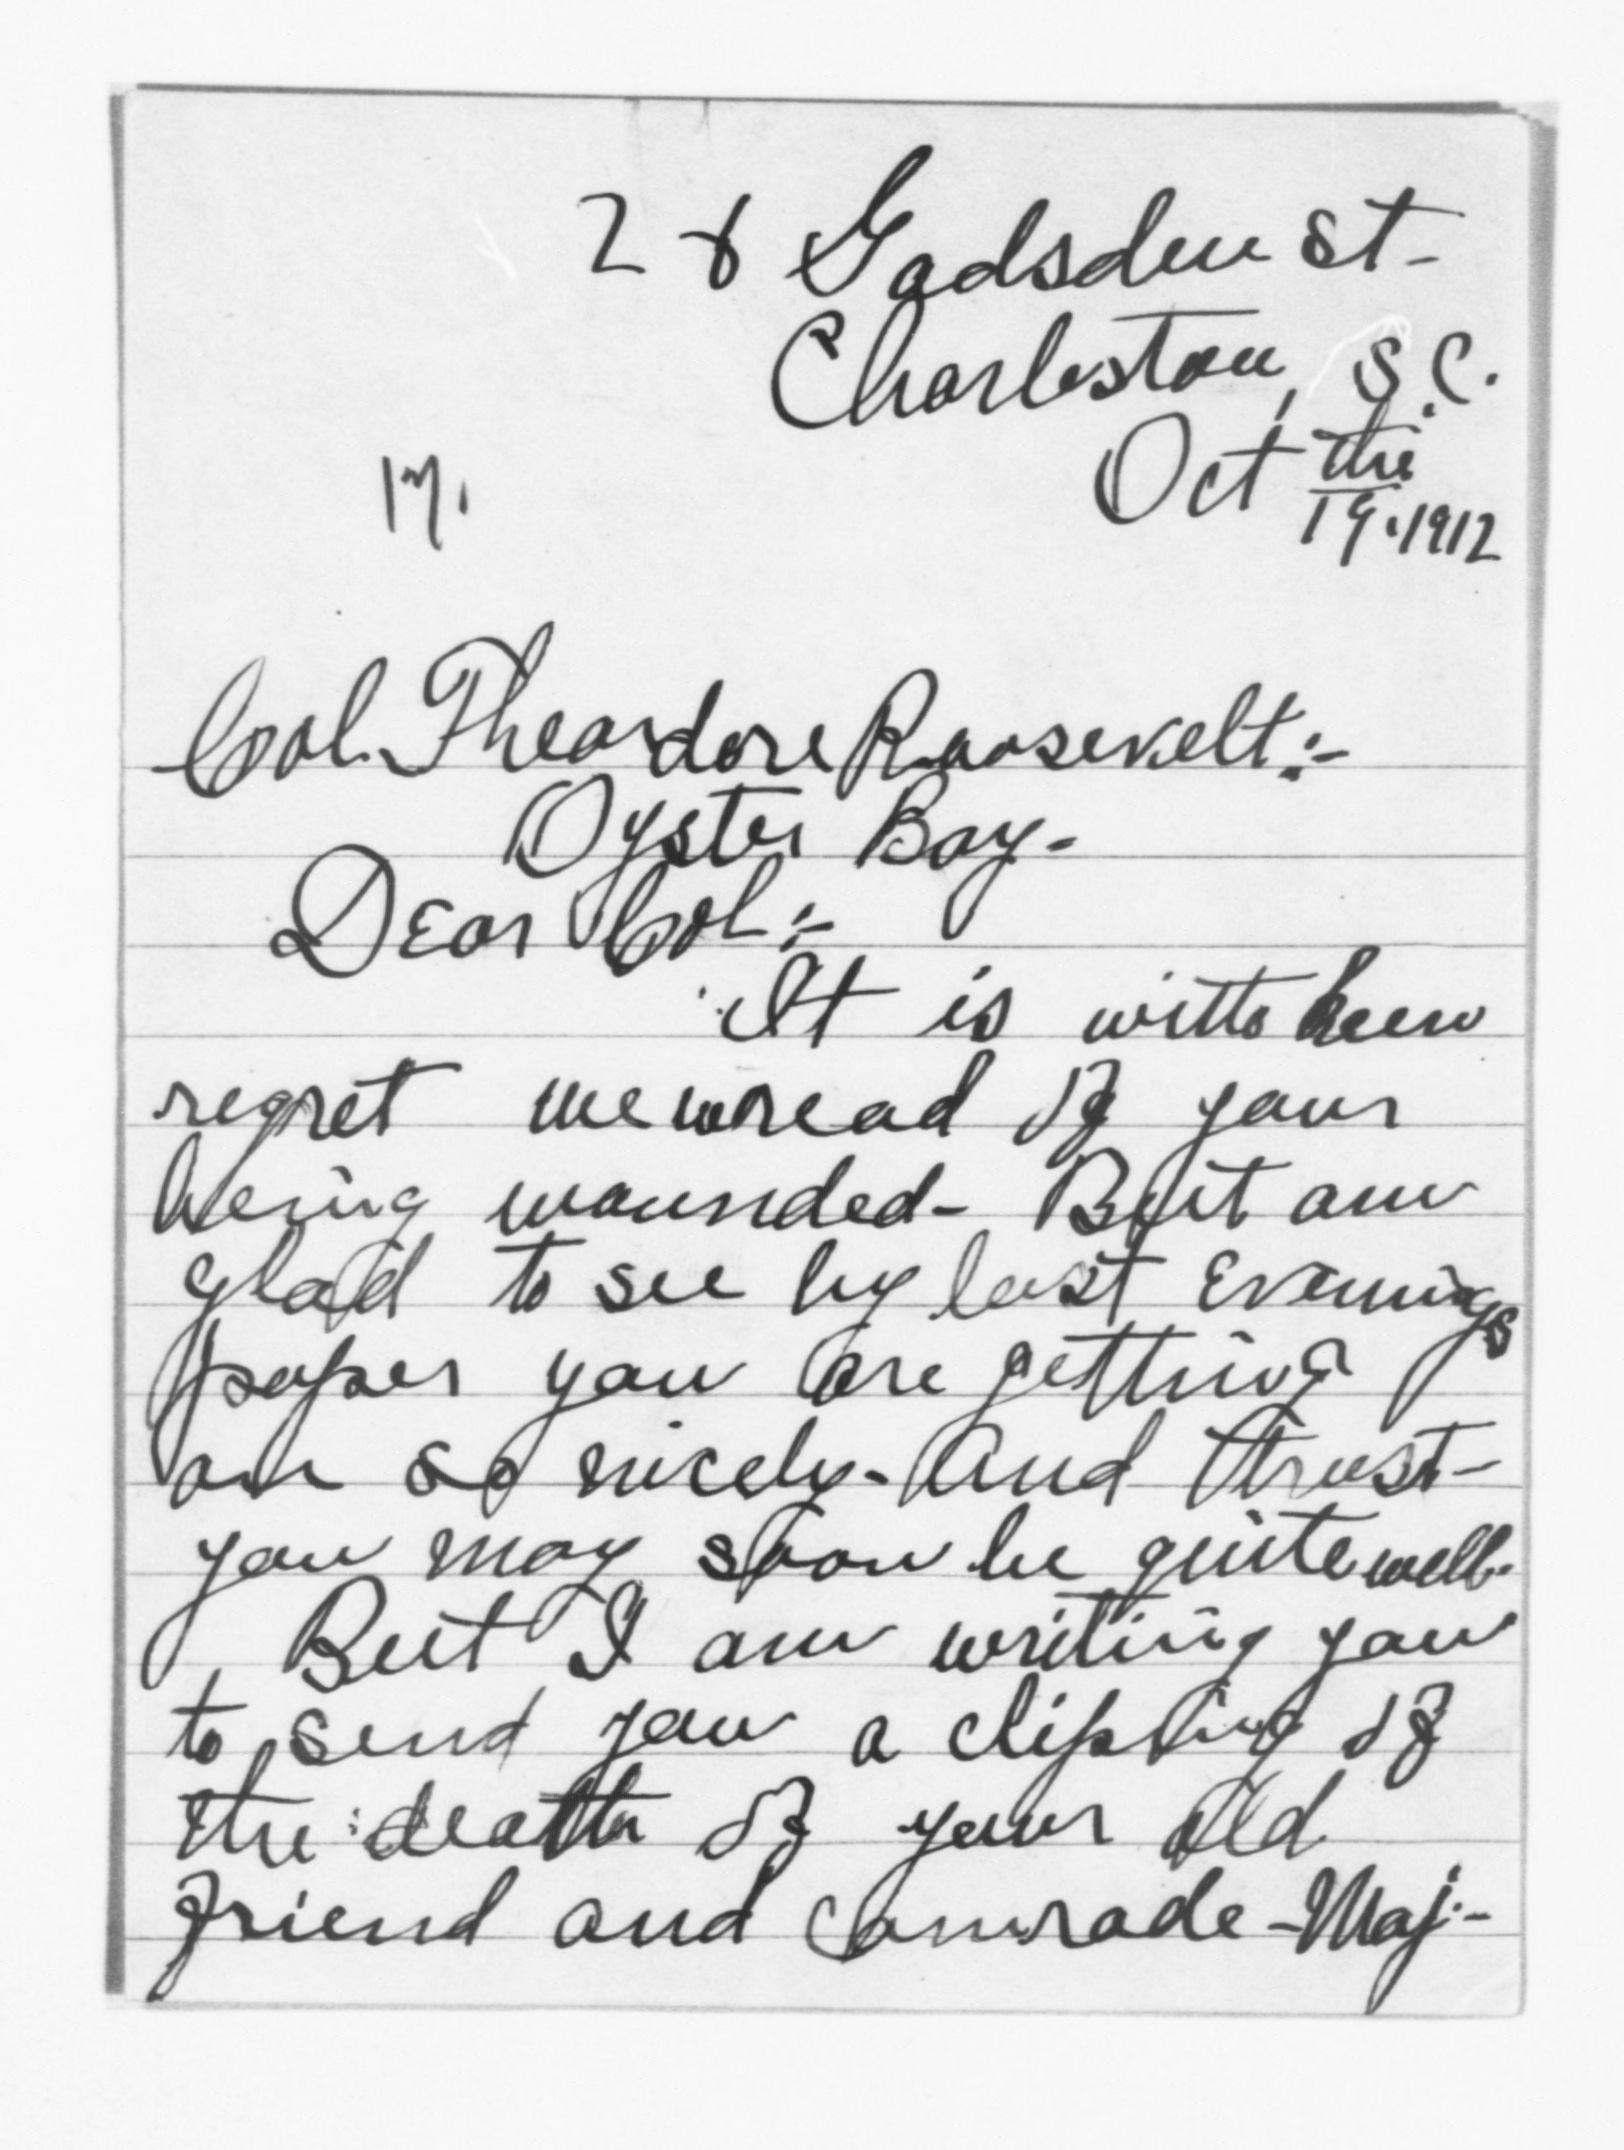 28 Gadsden St-
Charleston, S.C.
Oct the
19, 1912
M.
Col. Theordore Roosevelt:-
Oyster Bay-
Dear Col:-
It is with keen
regret we read of your
being wounded- But am
glad to see by last Evenings
paper you are getting
on so nicely- and trust-
you may soon be quite well.
But I am writing you
to send you a clipping of
the death of your old
friend and Comrade-Maj-